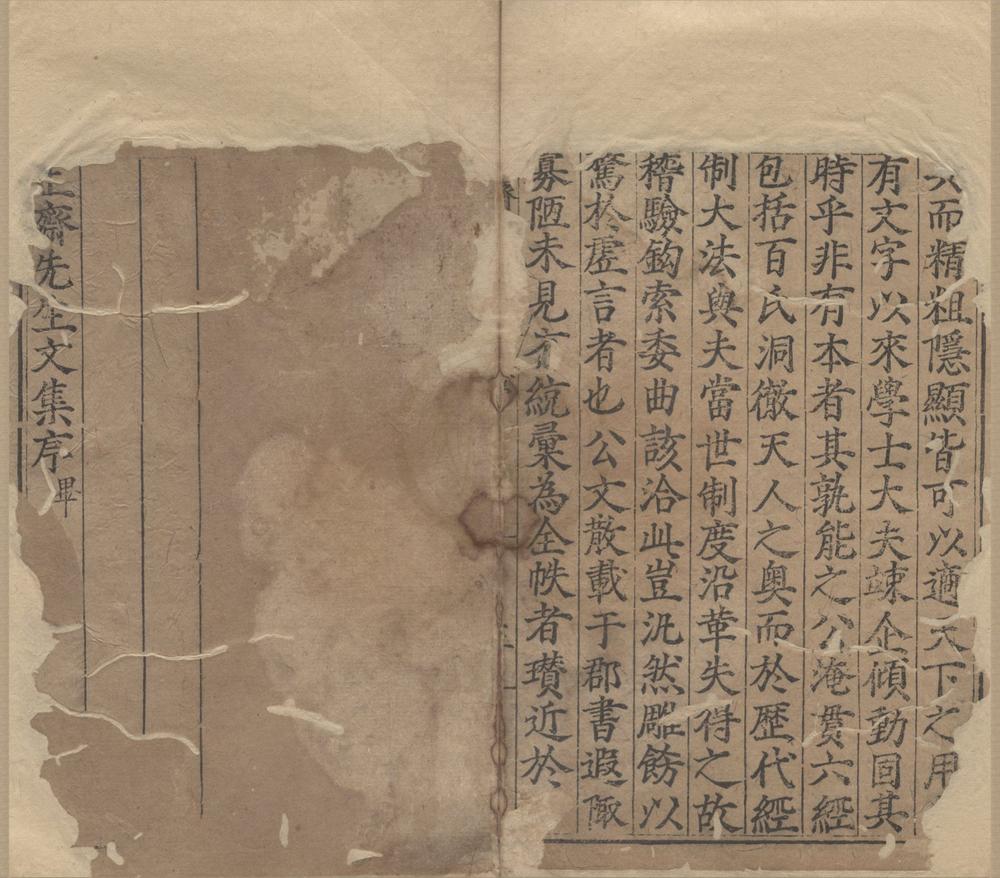 而精粗隱顯皆可以適天下之用
有文字以來學士大夫竦企傾動固其
時乎非有本者其孰能之公淹貫六經
包括百氏洞徹天人之奧而於歷代經
制大法與夫當世制度沿革失得之故
稽驗鈎索委曲該洽此豈汎然雕餝以
騖於虛言者也公文散載于郡書遐陬
募陋未見有統彙為全帙者瓚近於
止齋先生文集序畢